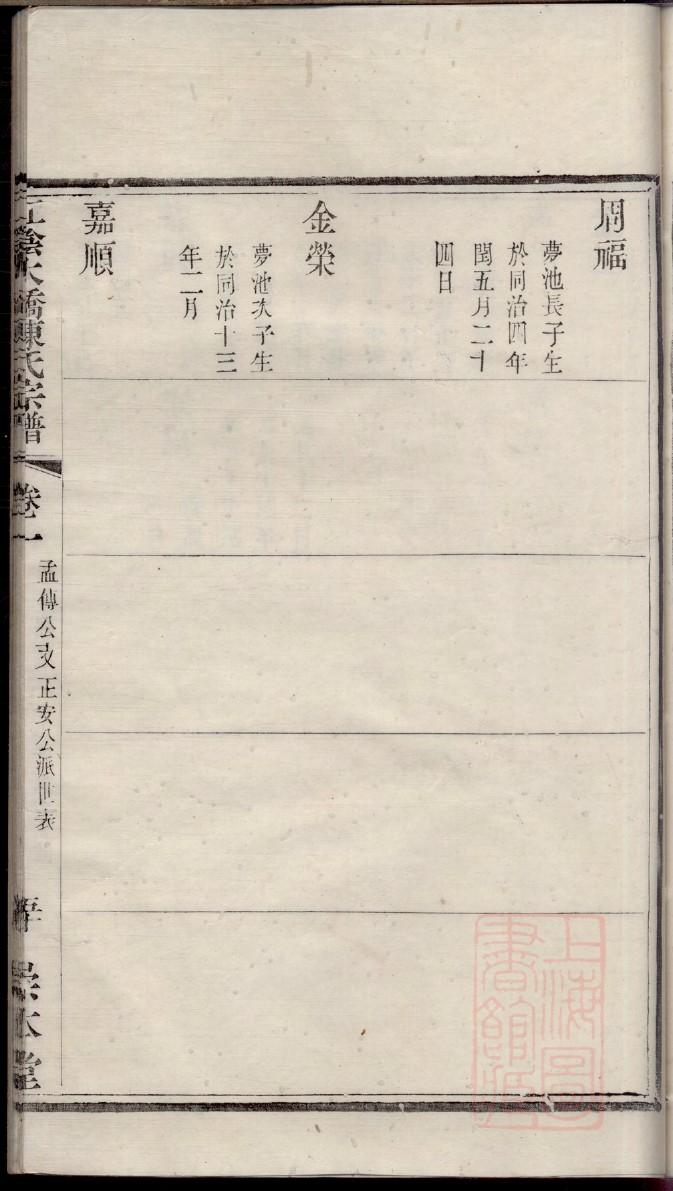 周福
夢池長子生
於同治四年
閏五月二十
四日
金榮
夢池次子生
於同治十三
年二月
嘉順
江陰大橋陳氏宗譜
卷一
孟傳公支正安公派世表
崇本堂
上海圖
書館藏